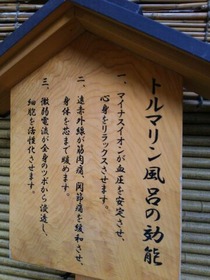 トルマリン風呂の効能
一、マイナスイオンが血圧を安定させ、
心身をリラックスさせます。
二、遠赤外線が筋肉痛、関節痛を緩和させ、
身体を芯まで暖めます。
三、微弱電流が全身のツボから浸透し、
細胞を活性化させます。